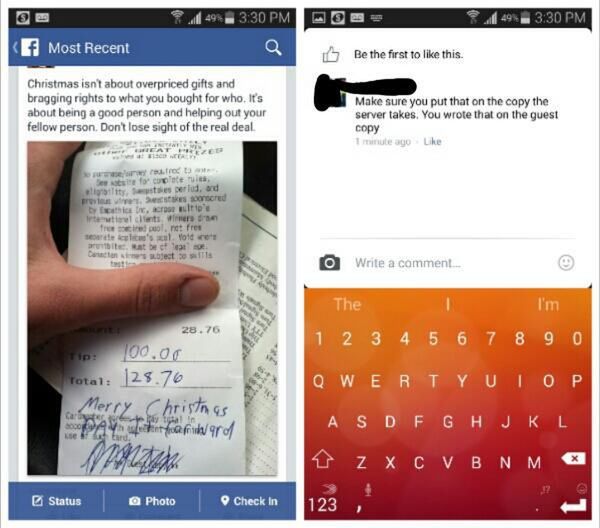 49% 3:30 PM
Most Recent
Christmas isn't about overpriced gifts and
bragging rights to what you bought for who. It's
about being a good person and helping out your
fellow person. Don't lose sight of the real deal.
other GREAT PRIZES
valued at $1500 WEEKLY!
No purchase/survey required to enter.
See website for complete rules,
eligibility, Sweepstakes period, and
previous winners. Sweepstakes sponsored
by Empathica Inc, across multiple
international clients. Winners drawn
from combined pool, not from
separate Applebee's pool. Void where
prohibited. Must be of legal age.
Canadian winners subject to skills
28.76
Tip: 100.00
Total: 128.76
Merry Christmas
Pay it forward
Cardmember agrees to pay total in
accordance with agreement governing
use of such card.
Status
Photo
Check In
49% 3:30 PM
Be the first to like this.
Make sure you put that on the copy the
server takes. You wrote that on the guest
copy
1 minute ago · Like
Write a comment...
The I I'm
1 2 3 4 5 6 7 8 9 0
Q W E R T Y U I O P
A S D F G H J K L
Z X C V B N M
123 , . !?